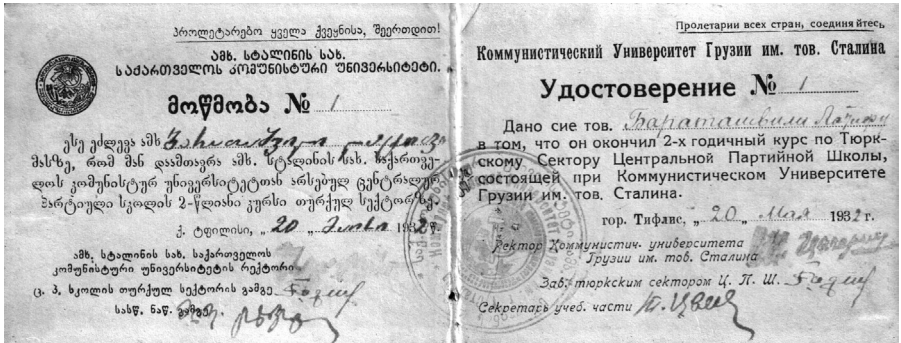 პროლეტარებო ყველა ქვეყნისა, შეერთდით!
ამხ. სტალინის სახ.
საქართველოს კომუნისტური უნივერსიტეტი.
მოწმობა № 1
ესე ეძლევა ამხ.
მასზე, რომ მან დაამთავრა ამხ. სტალინის სახ. საქართვე-
ლოს კომუნისტურ უნივერსიტეტთან არსებულ ცენტრალურ
პარტიული სკოლის 2-წლიანი კურსი თურქულ სექტორზე.
ქ. ტფილისი, „ 20 „ 1932 წ.
ამხ. სტალინის სახ. საქართველოს
კომუნისტური უნივერსიტეტის რექტორი
ც. პ. სკოლის თურქულ სექტორის გამგე
სასწ. ნაწ. გამგე
Пролетарии всех стран, соединяйтесь
Коммунистический Университет Грузии им. тов. Сталина
Удостоверение № 1
Дано сие тов. Бараташвили
в том, что он окончил 2-х годичный курс по Тюрк-
скому Сектору Центральной Партийной Школы,
состоящей при Коммунистическом Университете
Грузии им. тов. Сталина.
гор. Тифлис, „ 20 „ Мая 1932 г.
Ректор Коммунистич. университета
Грузии им. тов. Сталина
Зав. тюркским сектором Ц. П. Ш.
Секретарь учеб. части